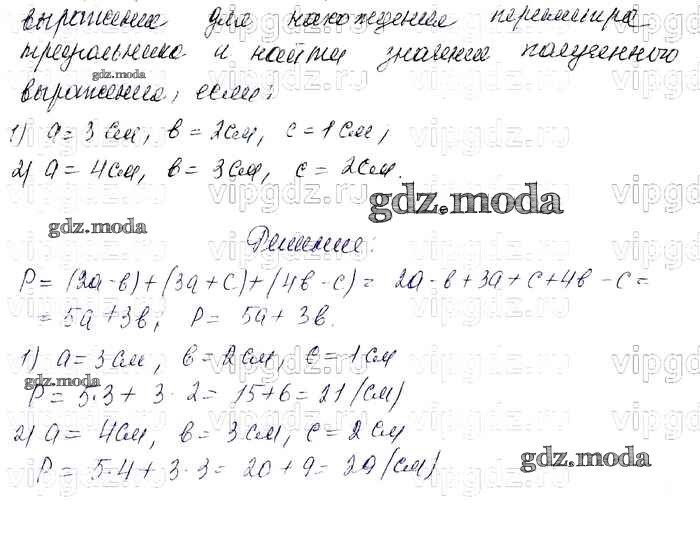 выражение для нахождения периметра
треугольника и найти значения полученного
gdz.moda
выражения, если:
1) a = 3 см, в = 2 см, c = 1 см;
2) a = 4 см, в = 3 см, c = 2 см.
gdz.moda
gdz.moda
Решение:
P = (2a - в) + (3a + c) + (4в - c) = 2a - в + 3a + c + 4в - c =
= 5a + 3в; P = 5a + 3в.
1) a = 3 см, в = 2 см, c = 1 см
gdz.moda
P = 5·3 + 3·2 = 15 + 6 = 21 (см)
2) a = 4 см, в = 3 см, c = 2 см
gdz.moda
P = 5·4 + 3·3 = 20 + 9 = 29 (см)
vipgdz.ru